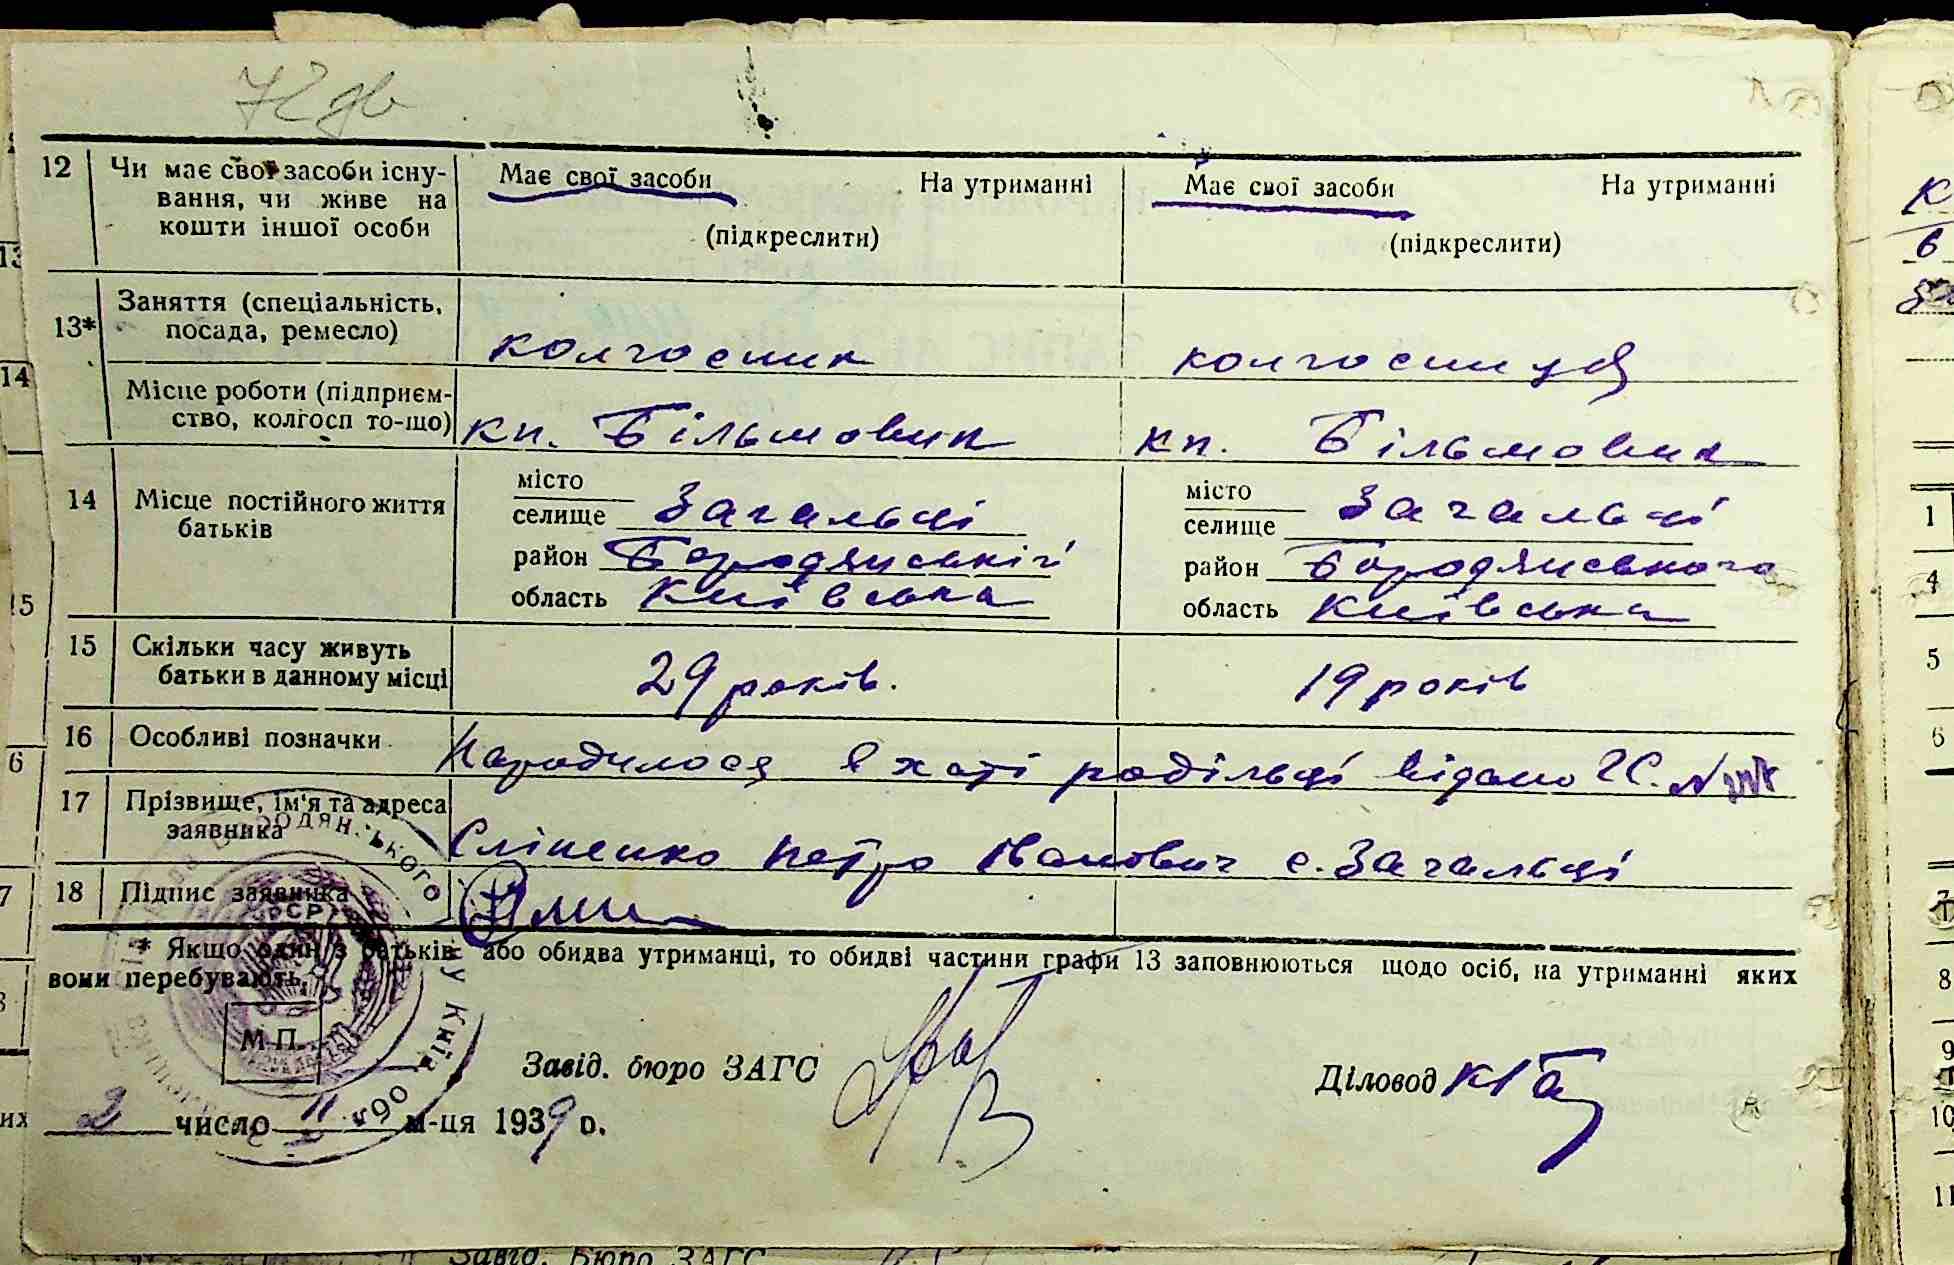 72 дв
12 Чи має свої засоби існу- Має свої засоби На утриманні Має свої засоби На утриманні
вання, чи живе на
кошти іншої особи (підкреслити) (підкреслити)
13* Заняття (спеціальність,
посада, ремесло) колгосник колгосниця
Місце роботи (підприєм-
ство, колгосп то-що) кп. Більшовик кп. Більшовик
14 Місце постійного життя місто місто
батьків селище Загальці селище Загальці
район Бородянській район Бородянського
область Київська область Київська
15 Скільки часу живуть
батьки в данному місці 29 років. 19 років
16 Особливі позначки Народилося в хаті родільці відомо
17 Прізвище, ім'я та адреса
заявника Сліпенко Петро Іванович с. Загальці
18 Підпис заявника
* Якщо один з батьків або обидва утриманці, то обидві частини графи 13 заповнюються щодо осіб, на утриманні яких
вони перебувають.
М.П.
Завід. бюро ЗАГС Діловод
2 число 11 м-ця 1939 р.
Завід. Бюро ЗАГС